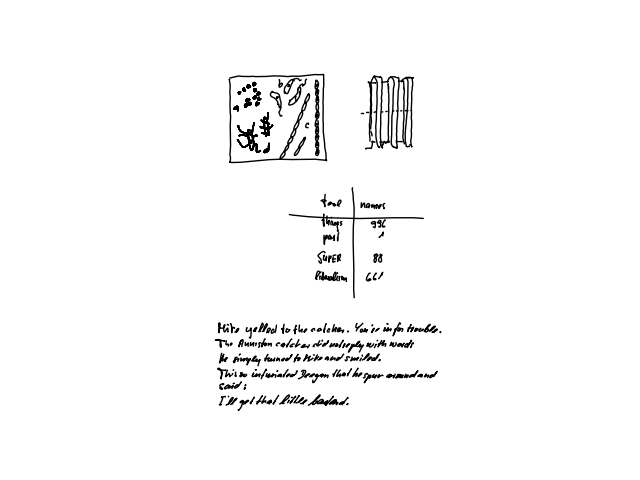 a b c d
tool names
things 996
past 1
SUPER 88
liberalism 661
Mike yelled to the catcher. You're in for trouble.
The Anniston catcher did not reply with words
He simply turned to Mike and smiled.
This so infuriated Deegan that he spun around and
said:
I'll get that little bastard.